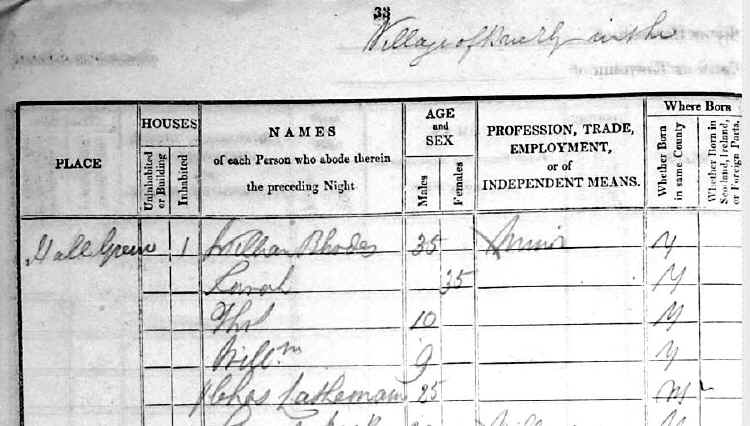 33
Village of in the
PLACE
HOUSES
Uninhabited or Building
Inhabited
NAMES
of each Person who abode therein
the preceding Night
AGE
and
SEX
Males
Females
PROFESSION, TRADE,
EMPLOYMENT,
or of
INDEPENDENT MEANS.
Where Born
Whether Born in same County
Whether Born in Scotland, Ireland, or Foreign Parts.
Hall Green 1 William Rhodes 35 Miner Y
Sarah 35 Y
Thos 10 Y
Willm 9 Y
Chas 25 N